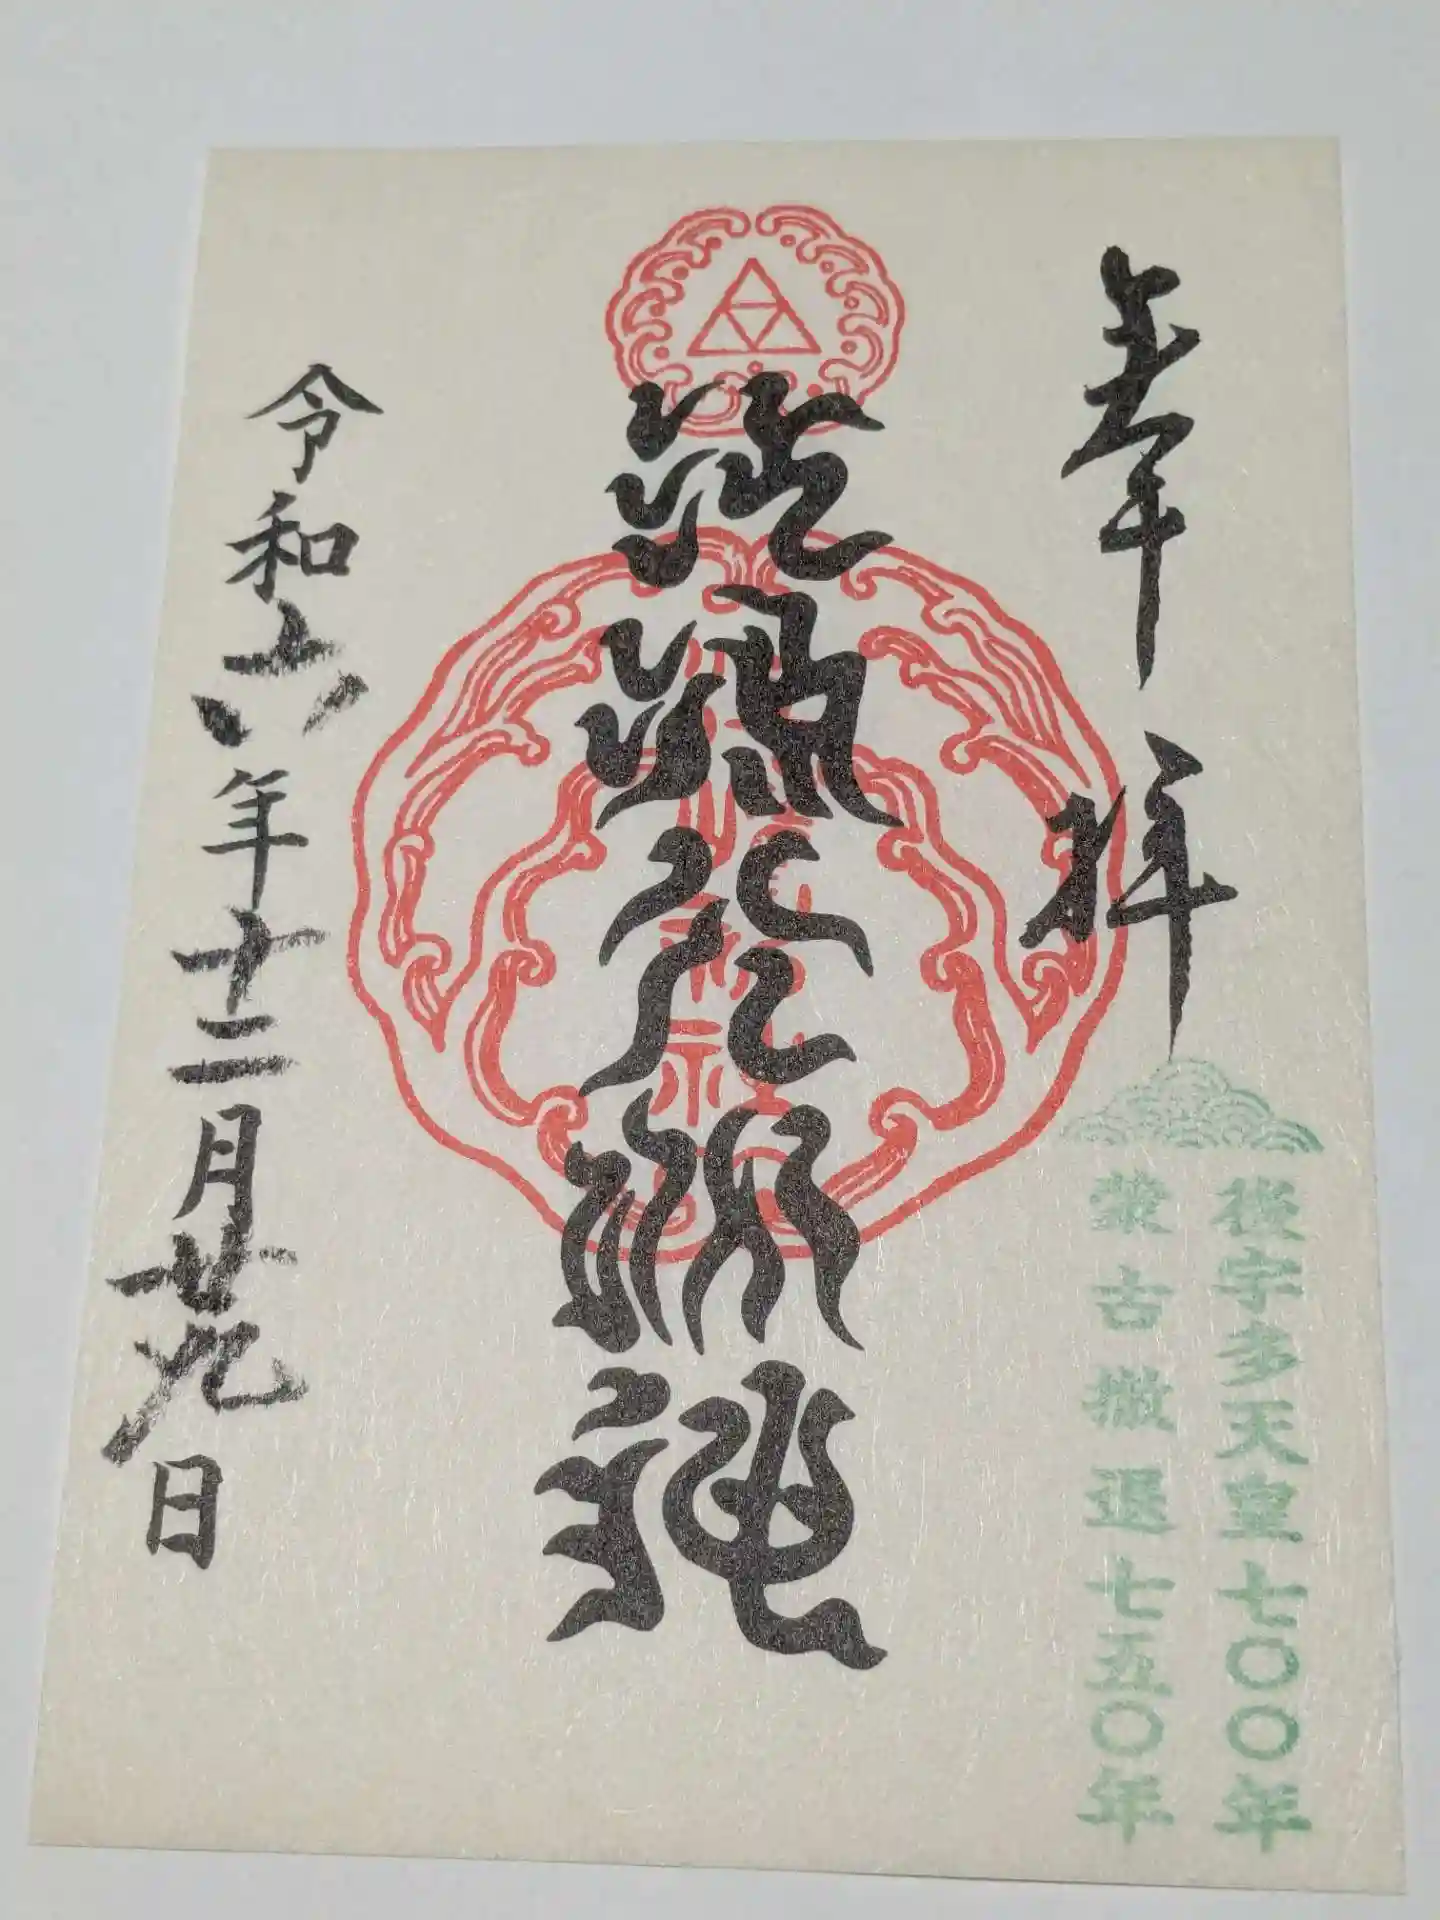 奉拝
後宇多天皇七〇〇年
蒙古撤退七五〇年
江島大明神
令和六年十二月廿九日